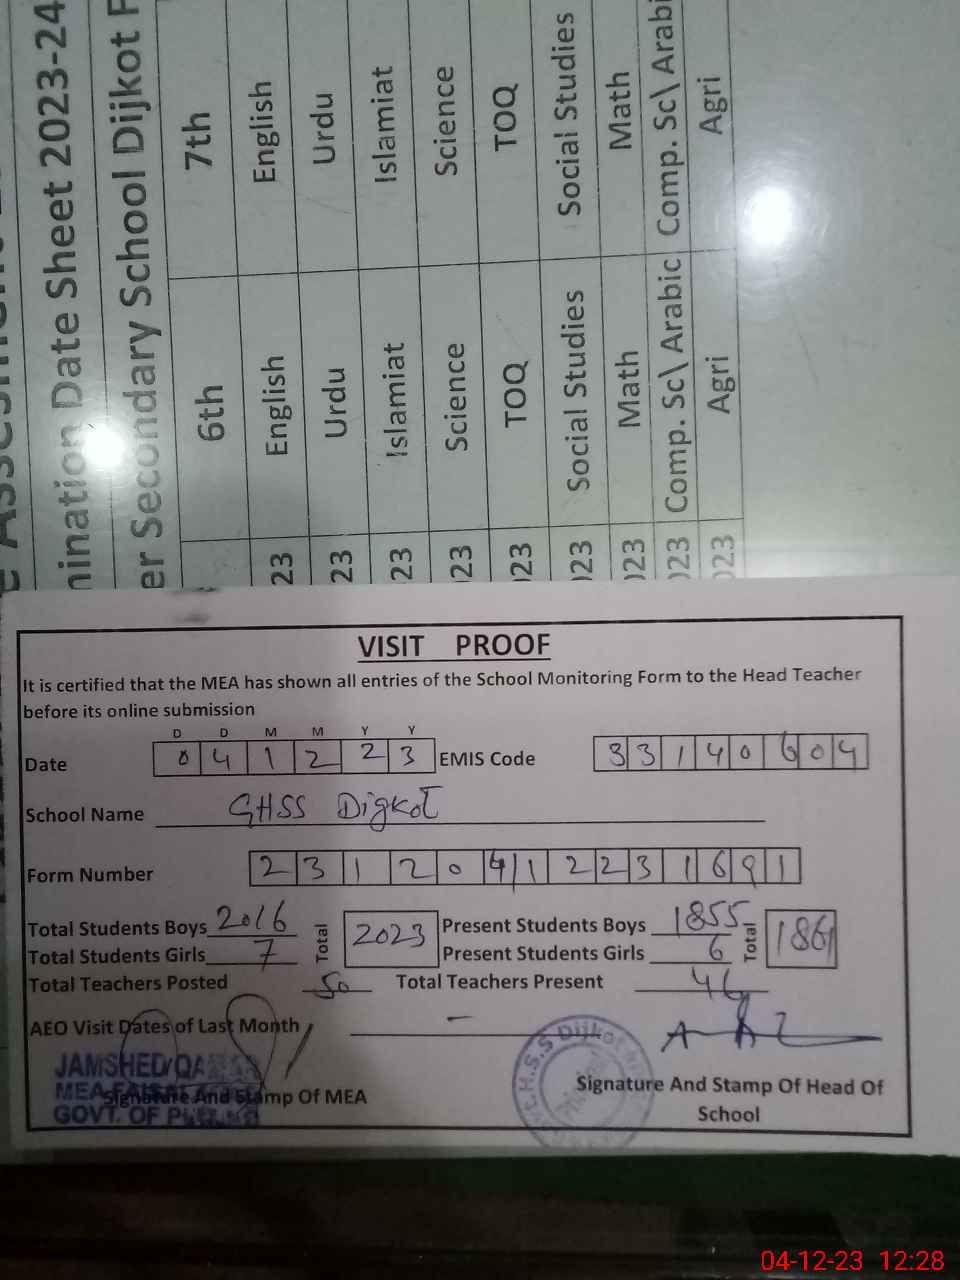 mination Date Sheet 2023-24
er Secondary School Dijkot F
6th 7th
23 English English
23 Urdu Urdu
23 Islamiat Islamiat
023 Science Science
023 TOQ TOQ
023 Social Studies Social Studies
023 Math Math
023 Comp. Sc\ Arabic Comp. Sc\ Arabi
023 Agri Agri
VISIT PROOF
It is certified that the MEA has shown all entries of the School Monitoring Form to the Head Teacher
before its online submission
D D M M Y Y
Date 0 4 1 2 2 3 EMIS Code 3 3 1 4 0 6 0 4
School Name GHSS Digkot
Form Number 2 3 1 2 0 4 1 2 2 3 1 6 9 1
Total Students Boys 2016 Total 2023 Present Students Boys 1855 Total 1861
Total Students Girls 7 Present Students Girls 6
Total Teachers Posted 50 Total Teachers Present 46
AEO Visit Dates of Last Month -
JAMSHED
MEA
GOVT. OF
Signature And Stamp Of MEA
G.H.S.S Dijkot
Signature And Stamp Of Head Of
School
04-12-23 12:28